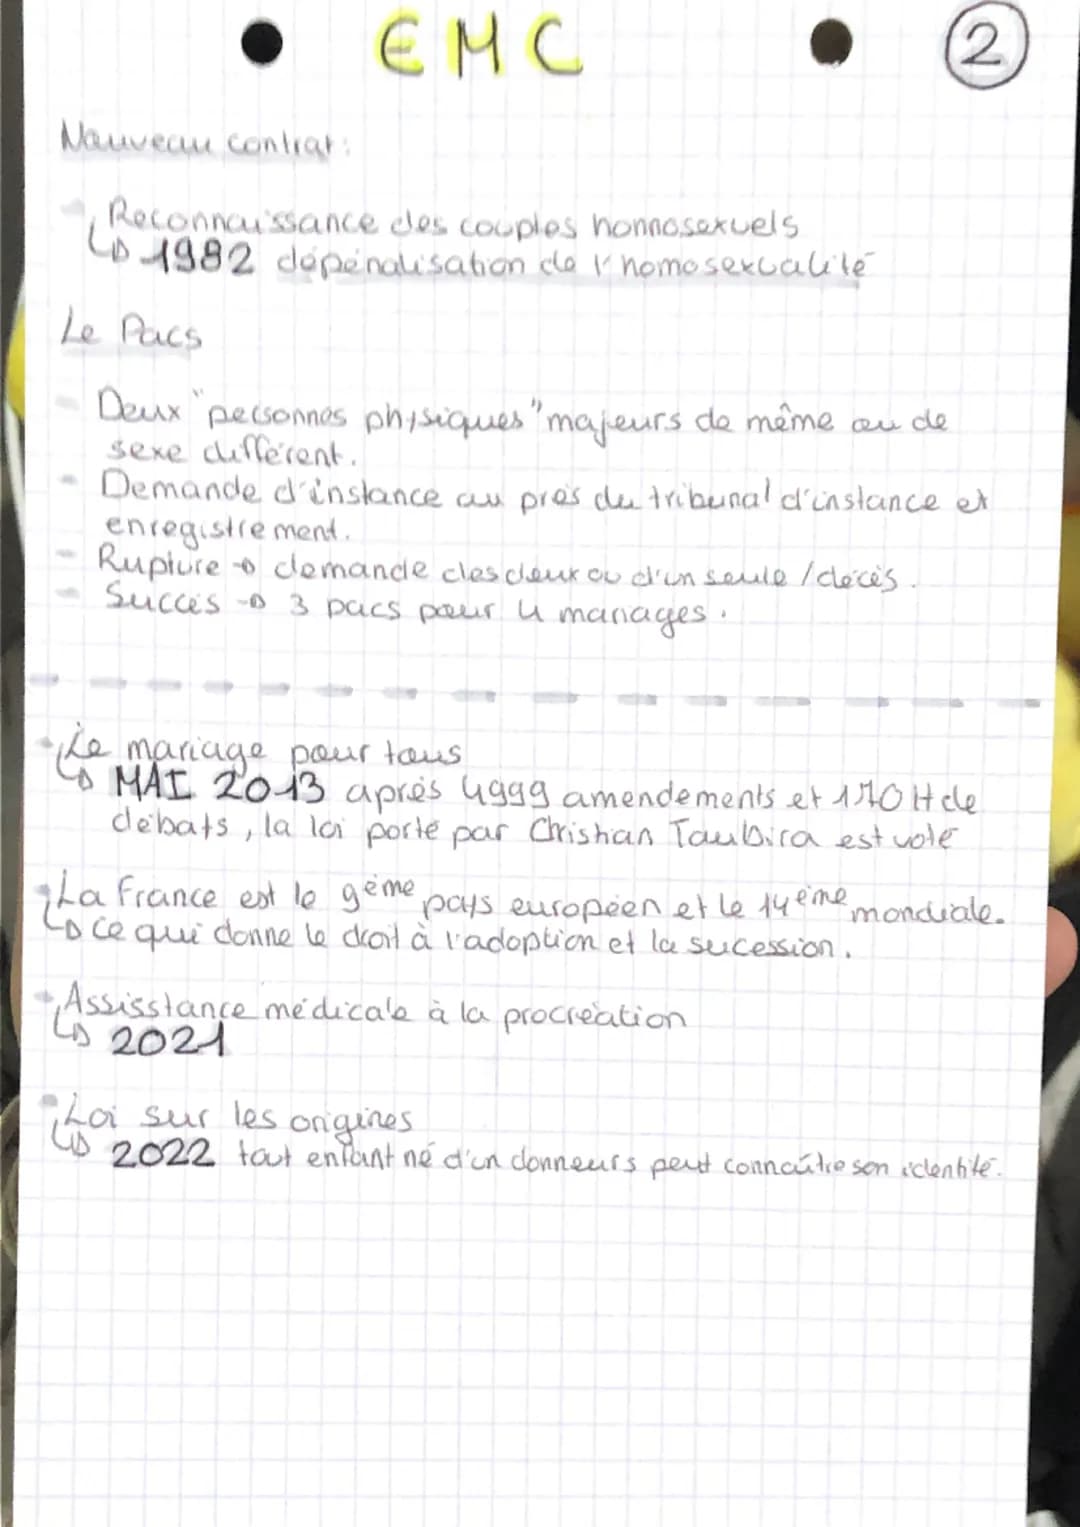 EMC
2
Nouveau contrat :
Reconnaissance des couples honnosexuels
↳ 1982 dépénalisation de l'homosexualité
Le Pacs
- Deux "personnes physiques" majeurs de même ou de
sexe différent.
- Demande d'instance au près du tribunal d'instance et
enregistrement.
- Rupture → demande des deux ou d'un seule / décès.
- Succès → 3 pacs pour 4 mariages.
- Le mariage pour tous
↳ MAI 2013 après 4999 amendements et 170 H de
débats, la loi porté par Christian Taubira est voté
- La France est le 9ème pays européen et le 14ème mondiale.
↳ ce qui donne le droit à l'adoption et la sucession.
- Assisstance médicale à la procréation
↳ 2021
- Loi sur les origines
↳ 2022 tout enfant né d'un donneurs peut connaître son identité.